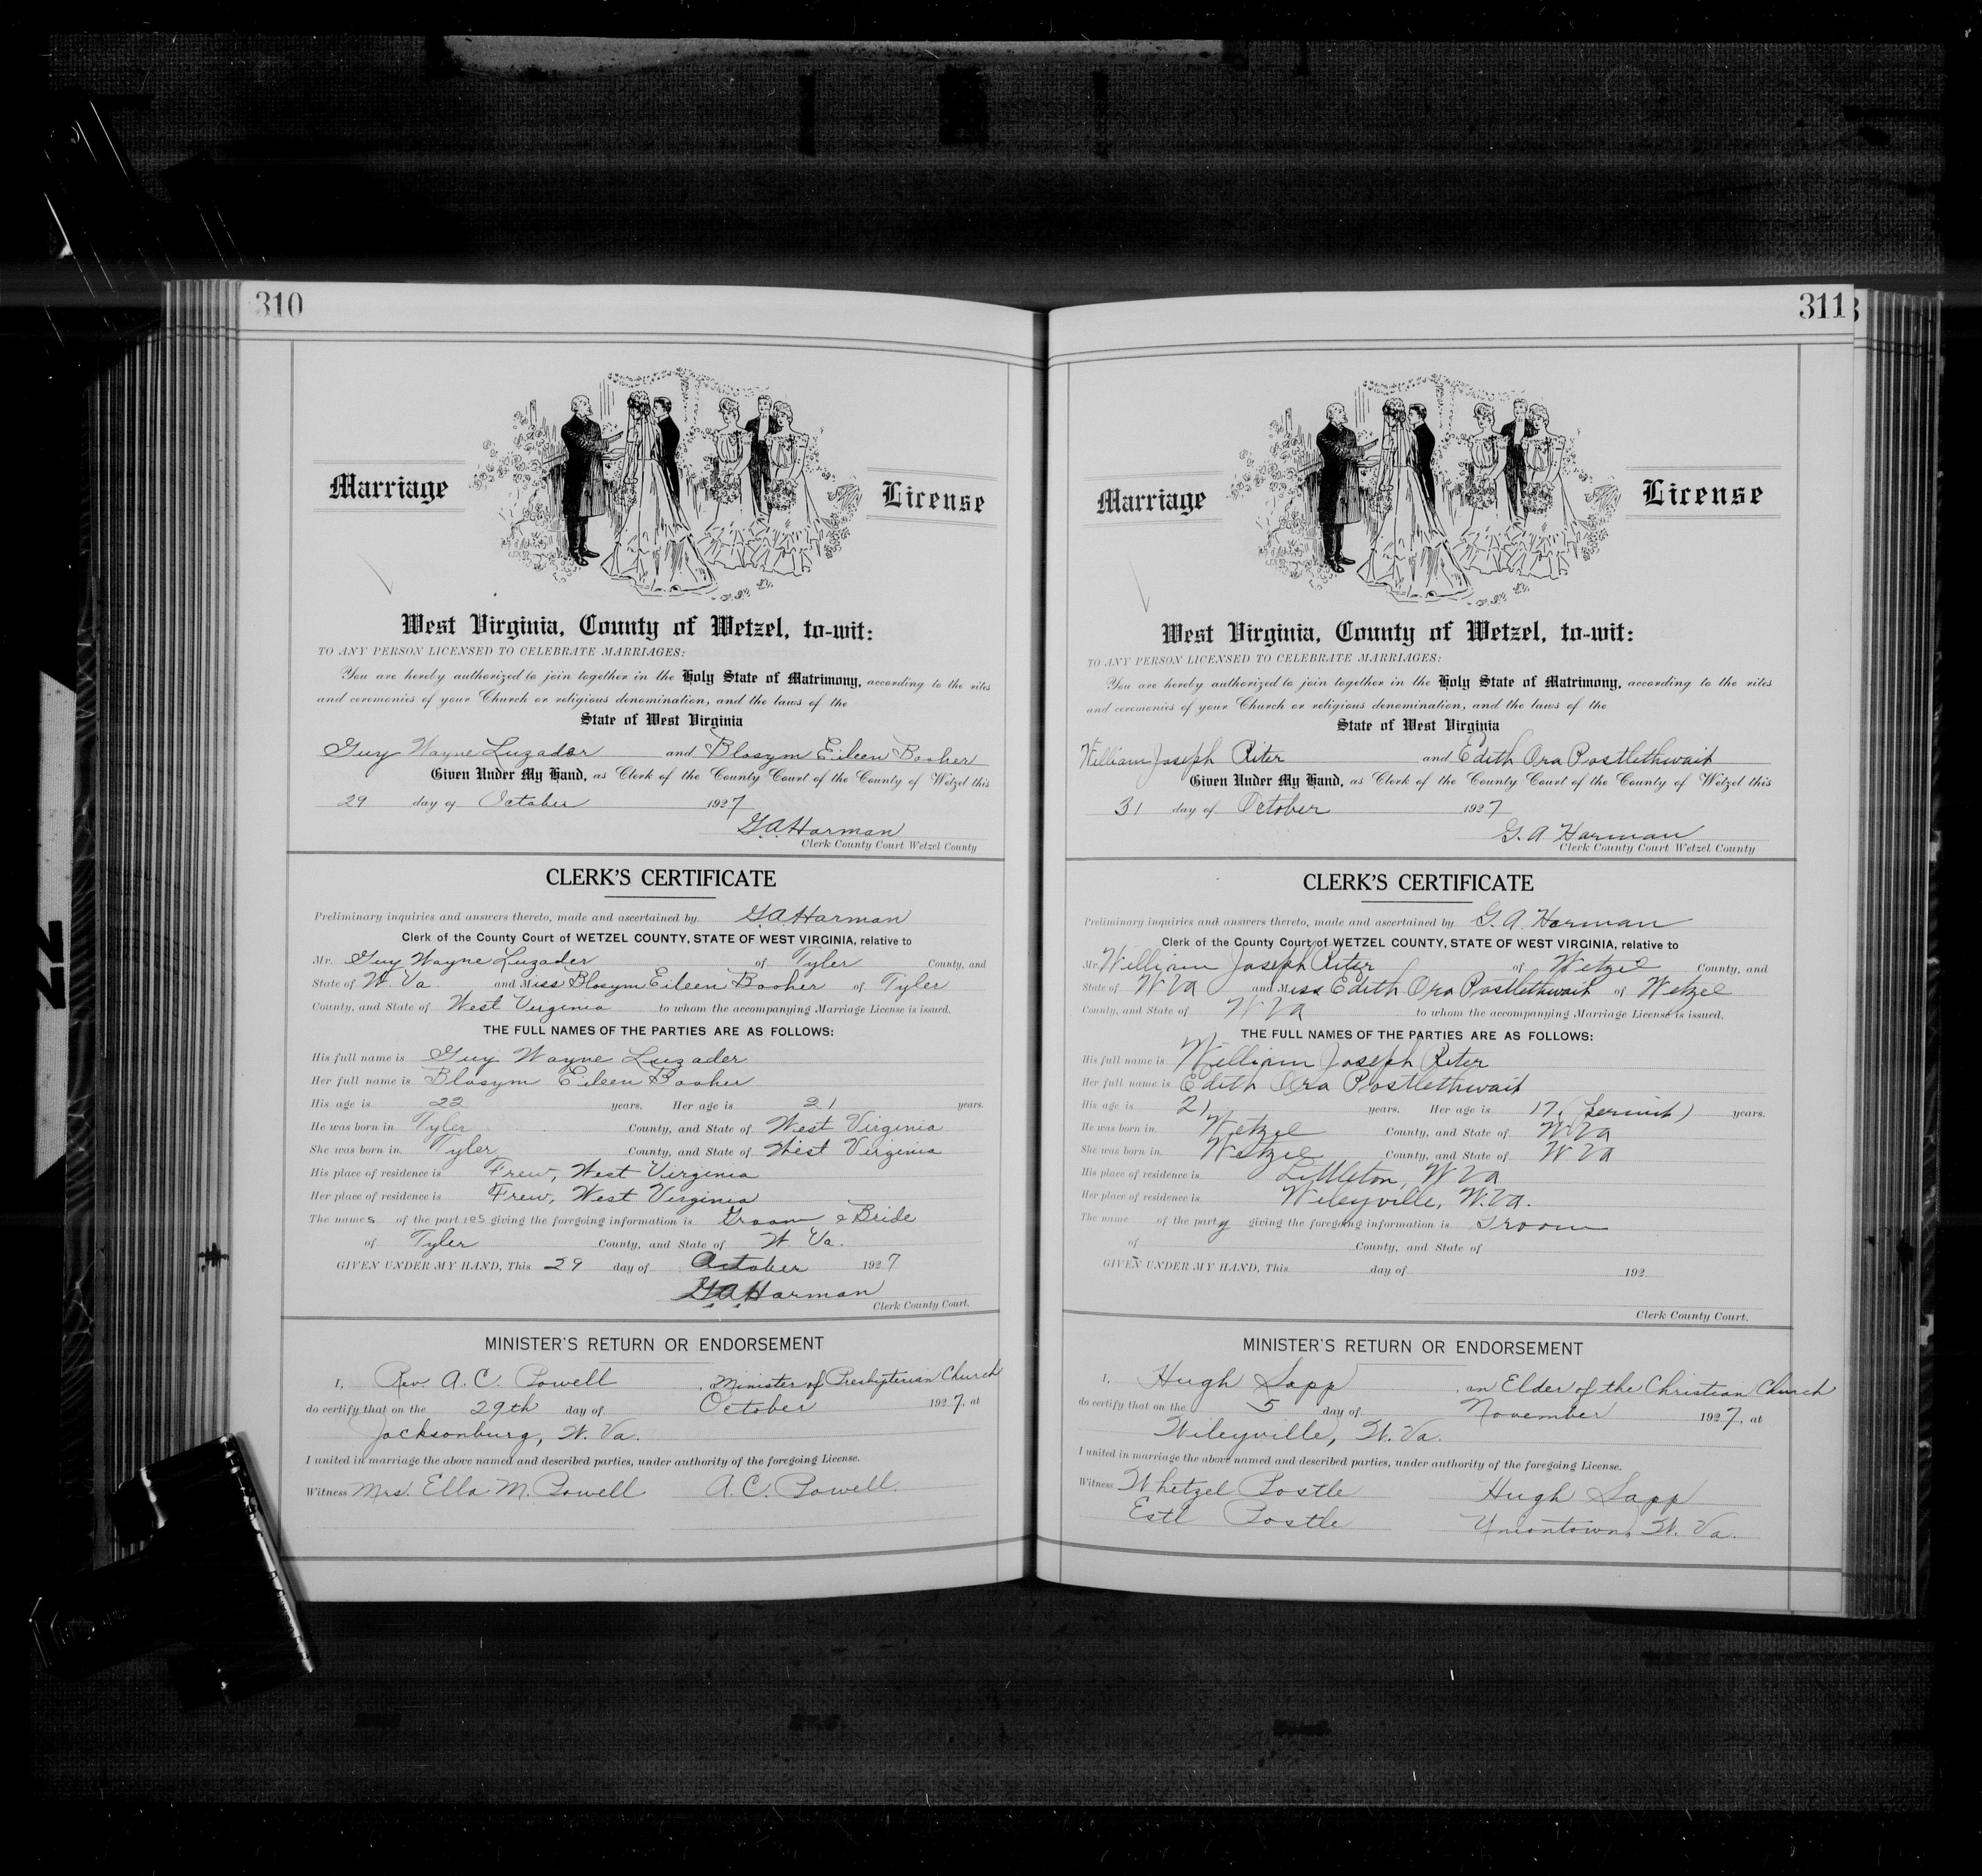 310
Marriage License
West Virginia, County of Wetzel, to-wit:
TO ANY PERSON LICENSED TO CELEBRATE MARRIAGES:
You are hereby authorized to join together in the Holy State of Matrimony, according to the rites
and ceremonies of your Church or religious denomination, and the laws of the
State of West Virginia
Guy Wayne Luzader and Blosym Eileen Booher
Given Under My Hand, as Clerk of the County Court of the County of Wetzel this
29 day of October 1927
G.A. Harman
Clerk County Court Wetzel County
CLERK'S CERTIFICATE
Preliminary inquiries and answers thereto, made and ascertained by G.A. Harman
Clerk of the County Court of WETZEL COUNTY, STATE OF WEST VIRGINIA, relative to
Mr. Guy Wayne Luzader of Tyler County, and
State of W. Va. and Miss Blosym Eileen Booher of Tyler
County, and State of West Virginia to whom the accompanying Marriage License is issued.
THE FULL NAMES OF THE PARTIES ARE AS FOLLOWS:
His full name is Guy Wayne Luzader
Her full name is Blosym Eileen Booher
His age is 22 years. Her age is 21 years.
He was born in Tyler County, and State of West Virginia
She was born in Tyler County, and State of West Virginia
His place of residence is Frew, West Virginia
Her place of residence is Frew, West Virginia
The names of the parties giving the foregoing information is Groom & Bride
of Tyler County, and State of W. Va.
GIVEN UNDER MY HAND, This 29 day of October 1927
G.A. Harman
Clerk County Court.
MINISTER'S RETURN OR ENDORSEMENT
I, Rev. A. C. Powell, Minister of Presbyterian Church
do certify that on the 29th day of October 1927, at
Jacksonburg, W. Va.
I united in marriage the above named and described parties, under authority of the foregoing License.
Witness Mrs. Ella M. Powell A. C. Powell.
311
Marriage License
West Virginia, County of Wetzel, to-wit:
TO ANY PERSON LICENSED TO CELEBRATE MARRIAGES:
You are hereby authorized to join together in the Holy State of Matrimony, according to the rites
and ceremonies of your Church or religious denomination, and the laws of the
State of West Virginia
William Joseph Riter and Edith Ora Postlethwait
Given Under My Hand, as Clerk of the County Court of the County of Wetzel this
31 day of October 1927
G. A Harman
Clerk County Court Wetzel County
CLERK'S CERTIFICATE
Preliminary inquiries and answers thereto, made and ascertained by G. A. Harman
Clerk of the County Court of WETZEL COUNTY, STATE OF WEST VIRGINIA, relative to
Mr. William Joseph Riter of Wetzel County, and
State of W Va and Miss Edith Ora Postlethwait of Wetzel
County, and State of W Va to whom the accompanying Marriage License is issued.
THE FULL NAMES OF THE PARTIES ARE AS FOLLOWS:
His full name is William Joseph Riter
Her full name is Edith Ora Postlethwait
His age is 21 years. Her age is 17, (permit) years.
He was born in Wetzel County, and State of W Va
She was born in Wetzel County, and State of W Va
His place of residence is Littleton, W Va
Her place of residence is Wileyville, W. Va.
The name of the party giving the foregoing information is Groom
of County, and State of
GIVEN UNDER MY HAND, This day of 192
Clerk County Court.
MINISTER'S RETURN OR ENDORSEMENT
I, Hugh Sapp, an Elder of the Christian Church
do certify that on the 5 day of November 1927, at
Wileyville, W. Va.
I united in marriage the above named and described parties, under authority of the foregoing License.
Witness Whetzel Postle Hugh Sapp
Estl Postle Uniontown, W. Va.